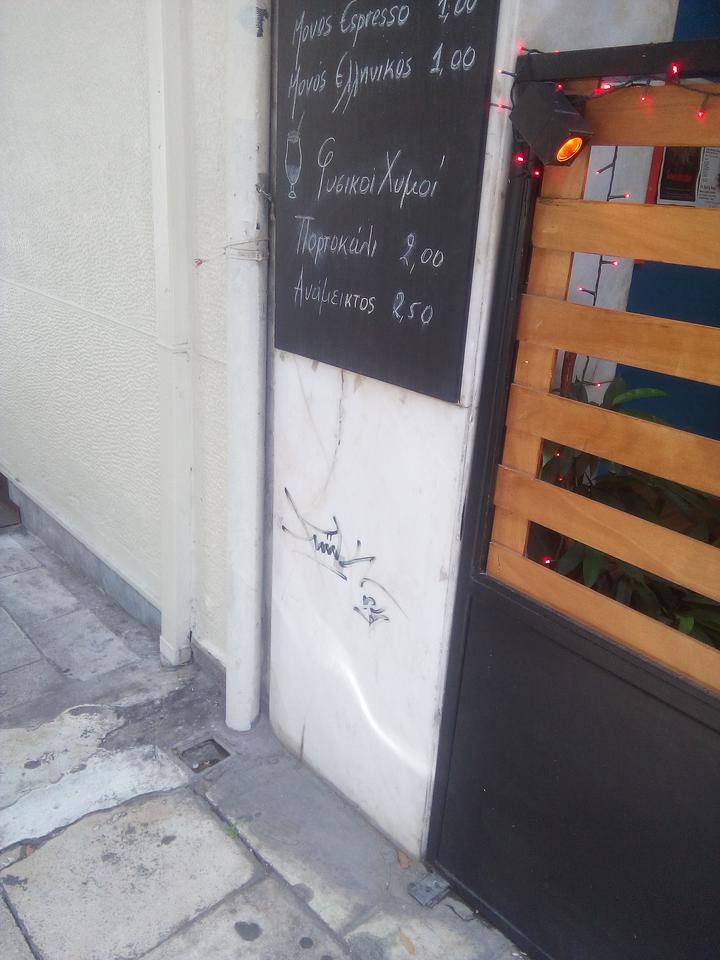 Μονός Espresso 1,00
Μονός Ελληνικός 1,00
Φυσικοί Χυμοί
Πορτοκάλι 2,00
Ανάμεικτος 2,50